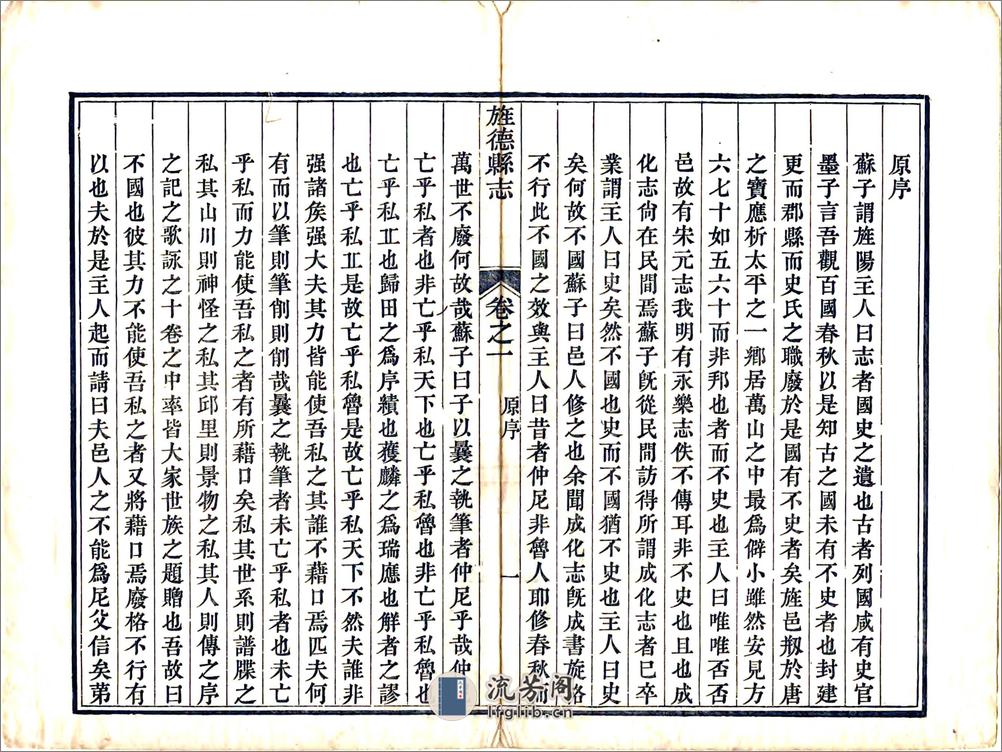 原序
蘇子謂旌陽主人曰志者國史之遺也古者列國咸有史官
墨子言吾觀百國春秋以是知古之國未有不史者也封建
更而郡縣而史氏之職廢於是國有不史者矣旌邑剏於唐
之寶應析太平之一鄉居萬山之中最爲僻小雖然安見方
六七十如五六十而非邦也者而不史也主人曰唯唯否否
邑故有宋元志我明有永樂志佚不傳耳非不史也且也成
化志尙在民間焉蘇子旣從民間訪得所謂成化志者已卒
業謂主人曰史矣然不國也史而不國猶不史也主人曰史
矣何故不國蘇子曰邑人修之也余聞成化志旣成書旋格
不行此不國之效與主人曰昔者仲尼非魯人耶修春秋而
旌德縣志
卷之一
原序
一
萬世不廢何故哉蘇子曰子以曩之執筆者仲尼乎哉仲
亡乎私者也非亡乎私天下也亡乎私魯也非亡乎私魯也
亡乎私㐀也歸田之爲序績也獲麟之爲瑞應也觧者之謬
也亡乎私㐀是故亡乎私魯是故亡乎私天下不然夫誰非
强諸矦强大夫其力皆能使吾私之其誰不藉口焉匹夫何
有而以筆則筆削則削哉曩之執筆者未亡乎私者也未亡
乎私而力能使吾私之者有所藉口矣私其世系則譜牒之
私其山川則神怪之私其邱里則景物之私其人則傳之序
之記之歌詠之十卷之中率皆大家世族之題贈也吾故曰
不國也彼其力不能使吾私之者又將藉口焉廢格不行有
以也夫於是主人起而請曰夫邑人之不能爲尼父信矣第
流芳阁
lfglib.cn